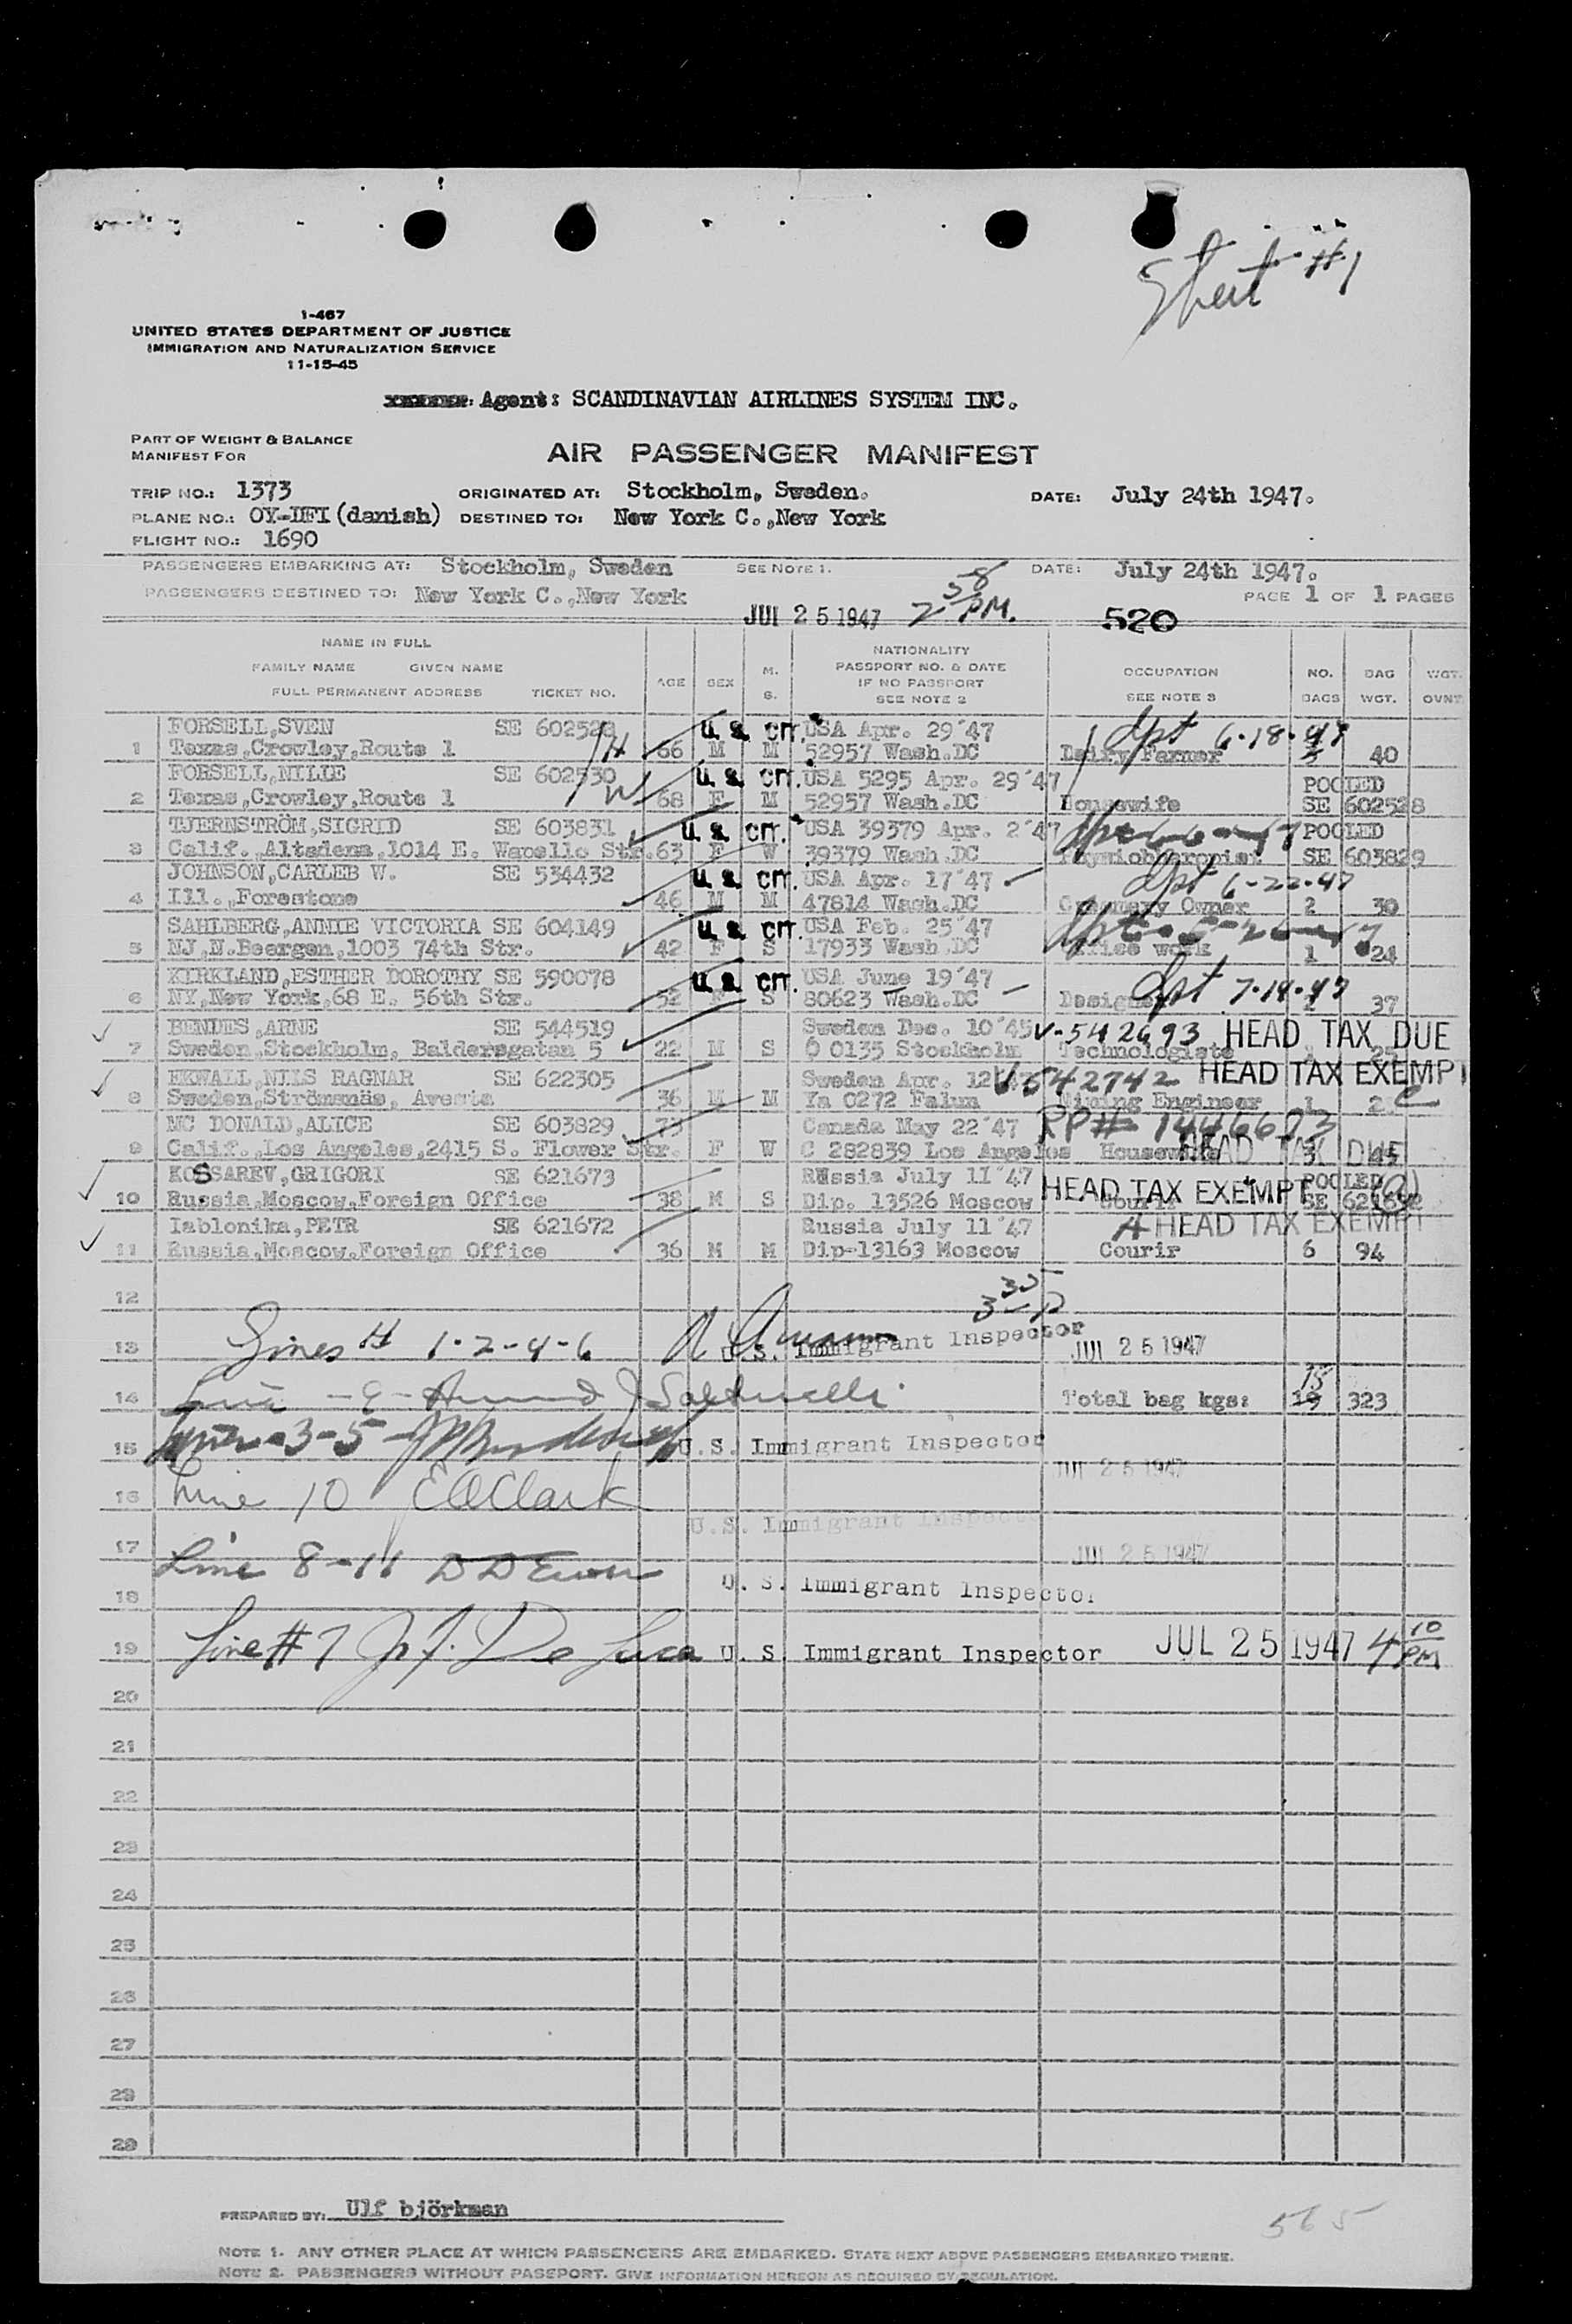 Sheet #1
1-467
UNITED STATES DEPARTMENT OF JUSTICE
IMMIGRATION AND NATURALIZATION SERVICE
11-15-45
Agent: SCANDINAVIAN AIRLINES SYSTEM INC.
PART OF WEIGHT & BALANCE
MANIFEST FOR
AIR PASSENGER MANIFEST
TRIP NO.: 1373 ORIGINATED AT: Stockholm, Sweden. DATE: July 24th 1947.
PLANE NO.: OY-DFI (danish) DESTINED TO: New York C.,New York
FLIGHT NO.: 1690
PASSENGERS EMBARKING AT: Stockholm, Sweden SEE NOTE 1. DATE: July 24th 1947.
PASSENGERS DESTINED TO: New York C.,New York PAGE 1 OF 1 PAGES
JUL 25 1947 2 58 PM. 520
NAME IN FULL
FAMILY NAME GIVEN NAME
FULL PERMANENT ADDRESS TICKET NO.
AGE SEX M. S.
NATIONALITY
PASSPORT NO. & DATE
IF NO PASSPORT
SEE NOTE 2
OCCUPATION
SEE NOTE 3
NO. BAGS
BAG WGT.
WGT. OVNT
FORSELL,SVEN SE 602528 U. S. CIT. USA Apr. 29'47 Dpt 6-18-47
1 Texas,Crowley,Route 1 H 66 M M 52957 Wash.DC Dairy Farmer 40
FORSELL,MILIE SE 602530 U. S. CIT. USA 5295 Apr. 29'47 POOLED
2 Texas,Crowley,Route 1 W 68 F M 52957 Wash.DC Housewife SE 602528
TJERNSTRÖM,SIGRID SE 603831 U. S. CIT. USA 39379 Apr. 2'47 POOLED
3 Calif.,Altadena,1014 E. Wapello Str. 63 F W 39379 Wash.DC SE 603829
JOHNSON,CARLEB W. SE 534432 U. S. CIT. USA Apr. 17'47 Dpt 6-22-47
4 Ill.,Forestone 46 M M 47814 Wash.DC Creamery Owner 2 30
SAHLBERG,ANNIE VICTORIA SE 604149 U. S. CIT. USA Feb. 25'47
5 NJ,N.Beergen,1003 74th Str. 42 F S 17933 Wash.DC Office work 1 24
KIRKLAND,ESTHER DOROTHY SE 590078 U. S. CIT. USA June 19'47
6 NY,New York,68 E. 56th Str. 52 F S 80623 Wash.DC Designer Dpt 7-14-47 37
BENDES,ARNE SE 544519 Sweden Dec. 10'45 V-542693 HEAD TAX DUE
7 Sweden,Stockholm, Baldersgatan 5 22 M S 0 0135 Stockholm Technologiste 25
EKWALL,NILS RAGNAR SE 622305 Sweden Apr. 12'47 V542742 HEAD TAX EXEMPT
8 Sweden,Strömsnäs, Avesta 36 M M Ya 0272 Falun Mining Engineer 1
MC DONALD,ALICE SE 603829 73 Canada May 22'47 RP# 1446673
9 Calif.,Los Angeles,2415 S. Flower Str. F W C 282839 Los Angeles Housewife HEAD TAX DUE 3 45
KOSSAREV,GRIGORI SE 621673 Russia July 11'47 POOLED
10 Russia,Moscow,Foreign Office 38 M S Dip. 13526 Moscow HEAD TAX EXEMPT
Iablonika,PETR SE 621672 Russia July 11'47 A HEAD TAX EXEMPT
11 Russia,Moscow,Foreign Office 36 M M Dip-13163 Moscow Courir 6 94
12 3 35 P
13 Lines # 1-2-4-6 U. S. Immigrant Inspector JUL 25 1947
14 Total bag kgs: 15 19 323
15 3-5 U.S. Immigrant Inspector
JUL 25 1947
16 Line 10 E A Clark
U.S. Immigrant Inspector
17 JUL 25 1947
Line 8-11
18 U. S. Immigrant Inspector
19 Line #7 De Luca U. S. Immigrant Inspector JUL 25 1947 4 10 PM
20
21
22
23
24
25
26
27
28
29
PREPARED BY: Ulf björkman
565
NOTE 1. ANY OTHER PLACE AT WHICH PASSENGERS ARE EMBARKED. STATE NEXT ABOVE PASSENGERS EMBARKED THERE.
NOTE 2. PASSENGERS WITHOUT PASSPORT. GIVE INFORMATION HEREON AS REQUIRED BY REGULATION.